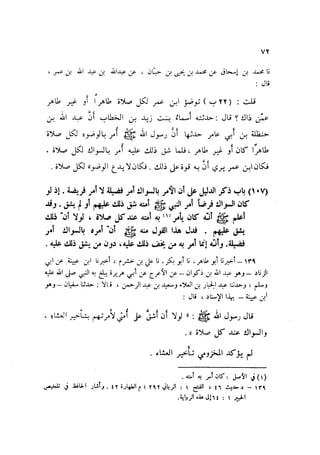 ٧٢
نا محمد بن إسحاق عن محمد بن يحيى بن حبّان ، عن عبدالله بن عبد الله بن عمر ،
قال :
قلت : (٢٢ ب) توضؤ ابن عمر لكل صلاة طاهراً أو غير طاهر
عمّن ذاك ؟ قال : حدثته أسماء بنت زيد بن الخطاب أنَّ عبد الله بن
حنظلة بن أبي عامر حدثها أنَّ رسول الله ﷺ أُمر بالوضوء لكل صلاة
طاهراً كان أو غير طاهر ، فلما شق ذلك عليه أُمر بالسواك لكل صلاة .
فكان ابن عمر يرى أنَّ به قوة على ذلك . فكان لا يدع الوضوء لكل صلاة .
(١٠٧) باب ذكر الدليل على أن الأمر بالسواك أمر فضيلة لا أمر فريضة . إذ لو
كان السواك فرضاً أمر النبي ﷺ أمته شق ذلك عليهم أو لم يشق . وقد
أعلم ﷺ أنّه كان يأمر (١) به أمته عند كل صلاة ، لولا أن ذلك
يشق عليهم . فدل هذا القول منه ﷺ أن أمره بالسواك أمر
فضيلة. وأنّه إنما أمر به من يخف ذلك عليه، دون من يشق ذلك عليه .
١٣٩ – أخبرنا أبو طاهر، نا أبو بكر، نا علي بن خشرم ؛ أخبرنا ابن عيينة عن أبي
الزناد – وهو عبد الله بن ذكوان – عن الأعرج عن أبي هريرة يبلغ به النبي صلى الله عليه
وسلم ، وحدثنا عبد الجبار بن العلاء وسعيد بن عبد الرحمن ، قالا : حدثنا سفيان – وهو
ابن عيينة – بهذا الإسناد ، قال :
قال رسول الله ﷺ : « لولا أن أشقَّ على أمتي لأمرتهم بتأخير العشاء ،
والسواك عند كل صلاة » .
لم يؤكد المخزومي تأخير العشاء .
(١) في الأصل : كان أمر به أمته .
١٣٩ – د حديث ٤٦ ، الفتح ١ : الرباني ٢٩٢ ؛ م الطهارة ٤٢ . وأشار الحافظ في تلخيص
الحبير ١ : ٦٤ إلى هذه الرواية.